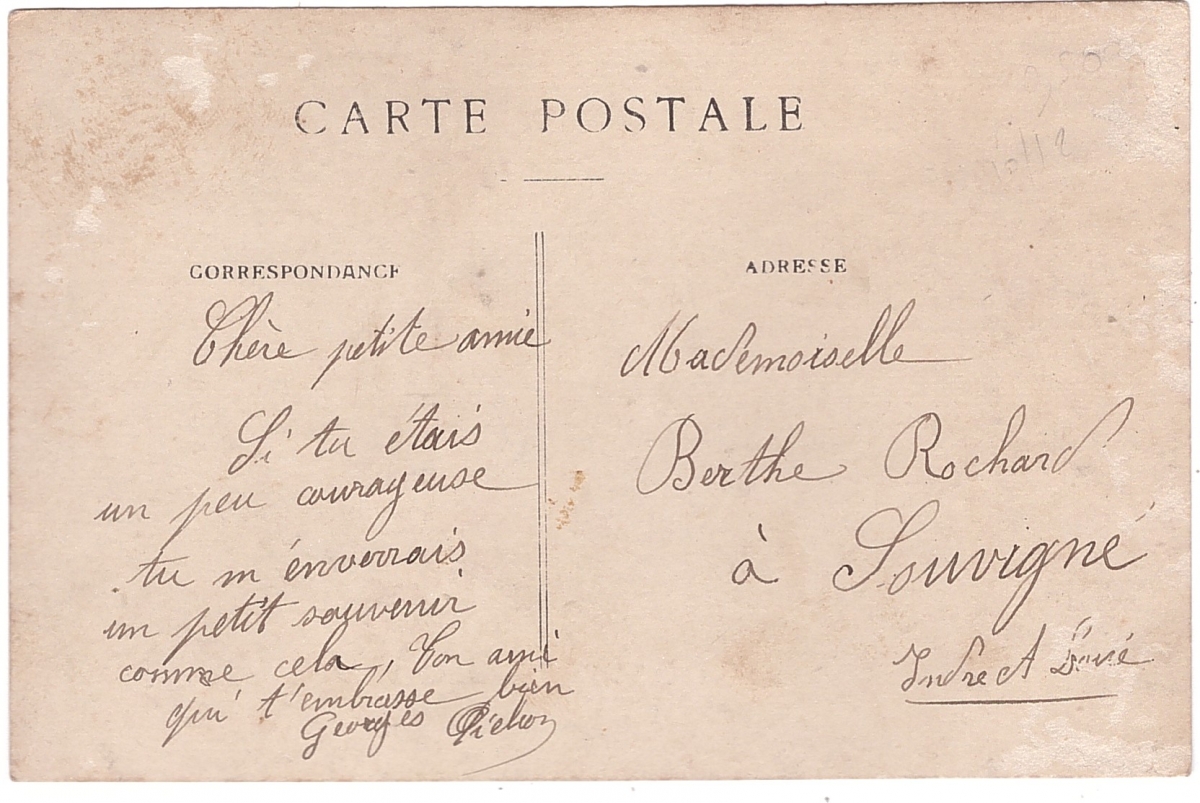 CARTE POSTALE
CORRESPONDANCE
Chère petite amie
Si tu étais
un peu courageuse
tu m'énverrais
un petit souvenir
comme cela, Ton ami
qui t'embrasse bien
Georges Pichon
ADRESSE
Mademoiselle
Berthe Rochard
à Souvigné
Indre et